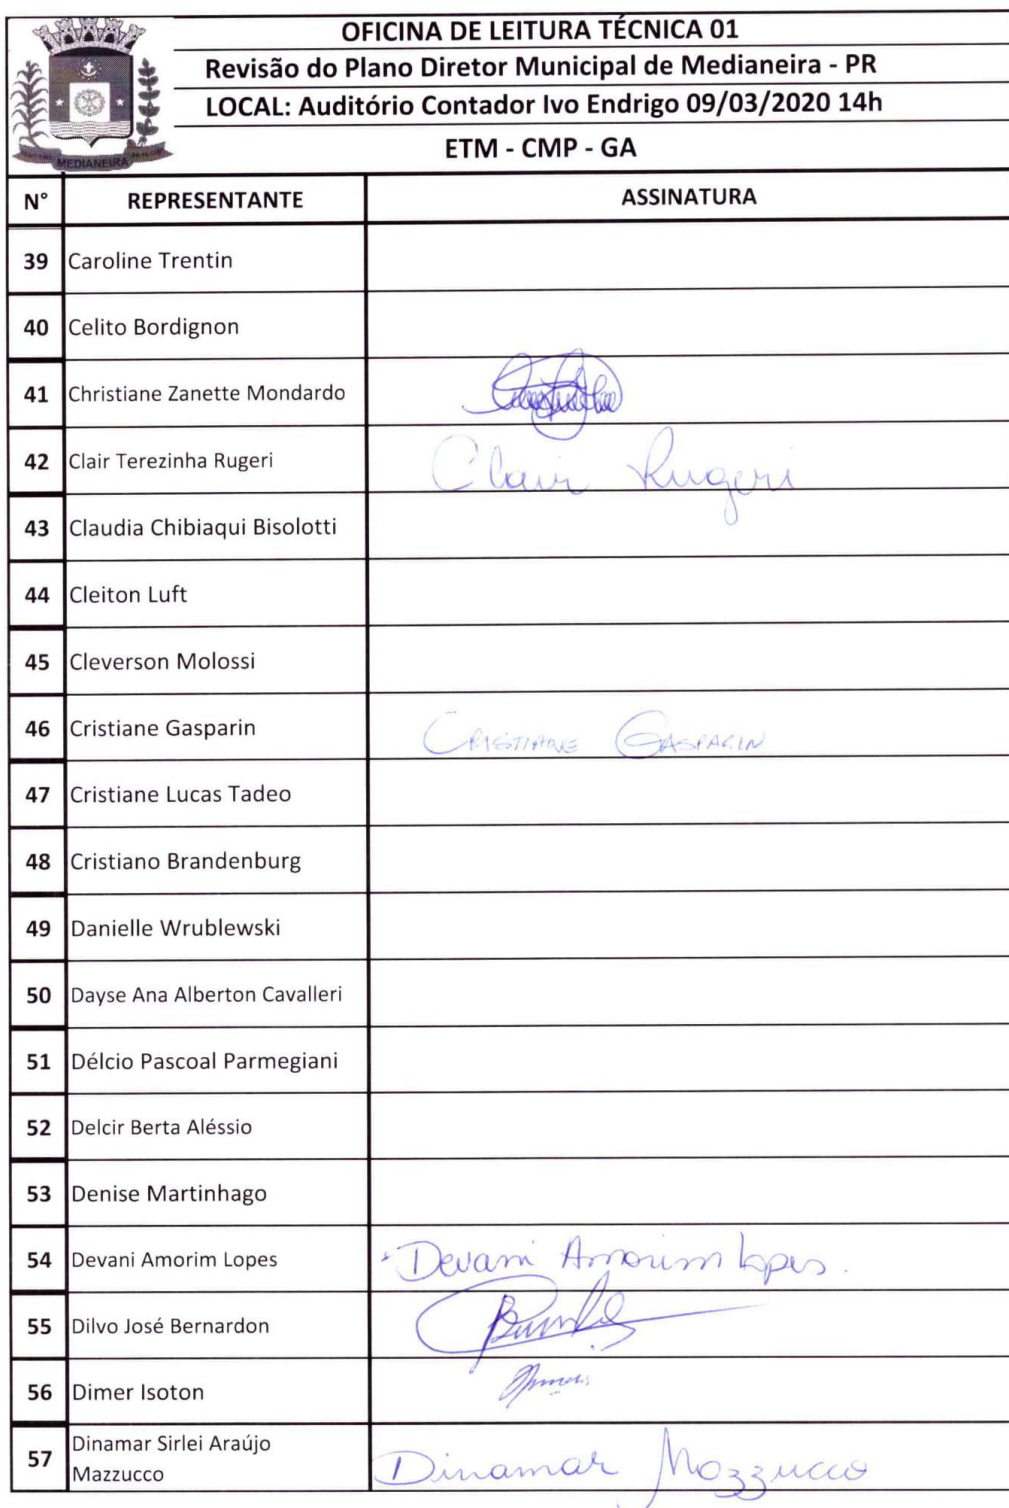 OFICINA DE LEITURA TÉCNICA 01
Revisão do Plano Diretor Municipal de Medianeira - PR
LOCAL: Auditório Contador Ivo Endrigo 09/03/2020 14h
ETM - CMP - GA
MEDIANEIRA
N° REPRESENTANTE ASSINATURA
39 Caroline Trentin
40 Celito Bordignon
41 Christiane Zanette Mondardo
42 Clair Terezinha Rugeri Clair Rugeri
43 Claudia Chibiaqui Bisolotti
44 Cleiton Luft
45 Cleverson Molossi
46 Cristiane Gasparin CRISTIANE GASPARIN
47 Cristiane Lucas Tadeo
48 Cristiano Brandenburg
49 Danielle Wrublewski
50 Dayse Ana Alberton Cavalleri
51 Délcio Pascoal Parmegiani
52 Delcir Berta Aléssio
53 Denise Martinhago
54 Devani Amorim Lopes Devani Amorim Lopes.
55 Dilvo José Bernardon
56 Dimer Isoton
57 Dinamar Sirlei Araújo
Mazzucco Dinamar Mozzucco